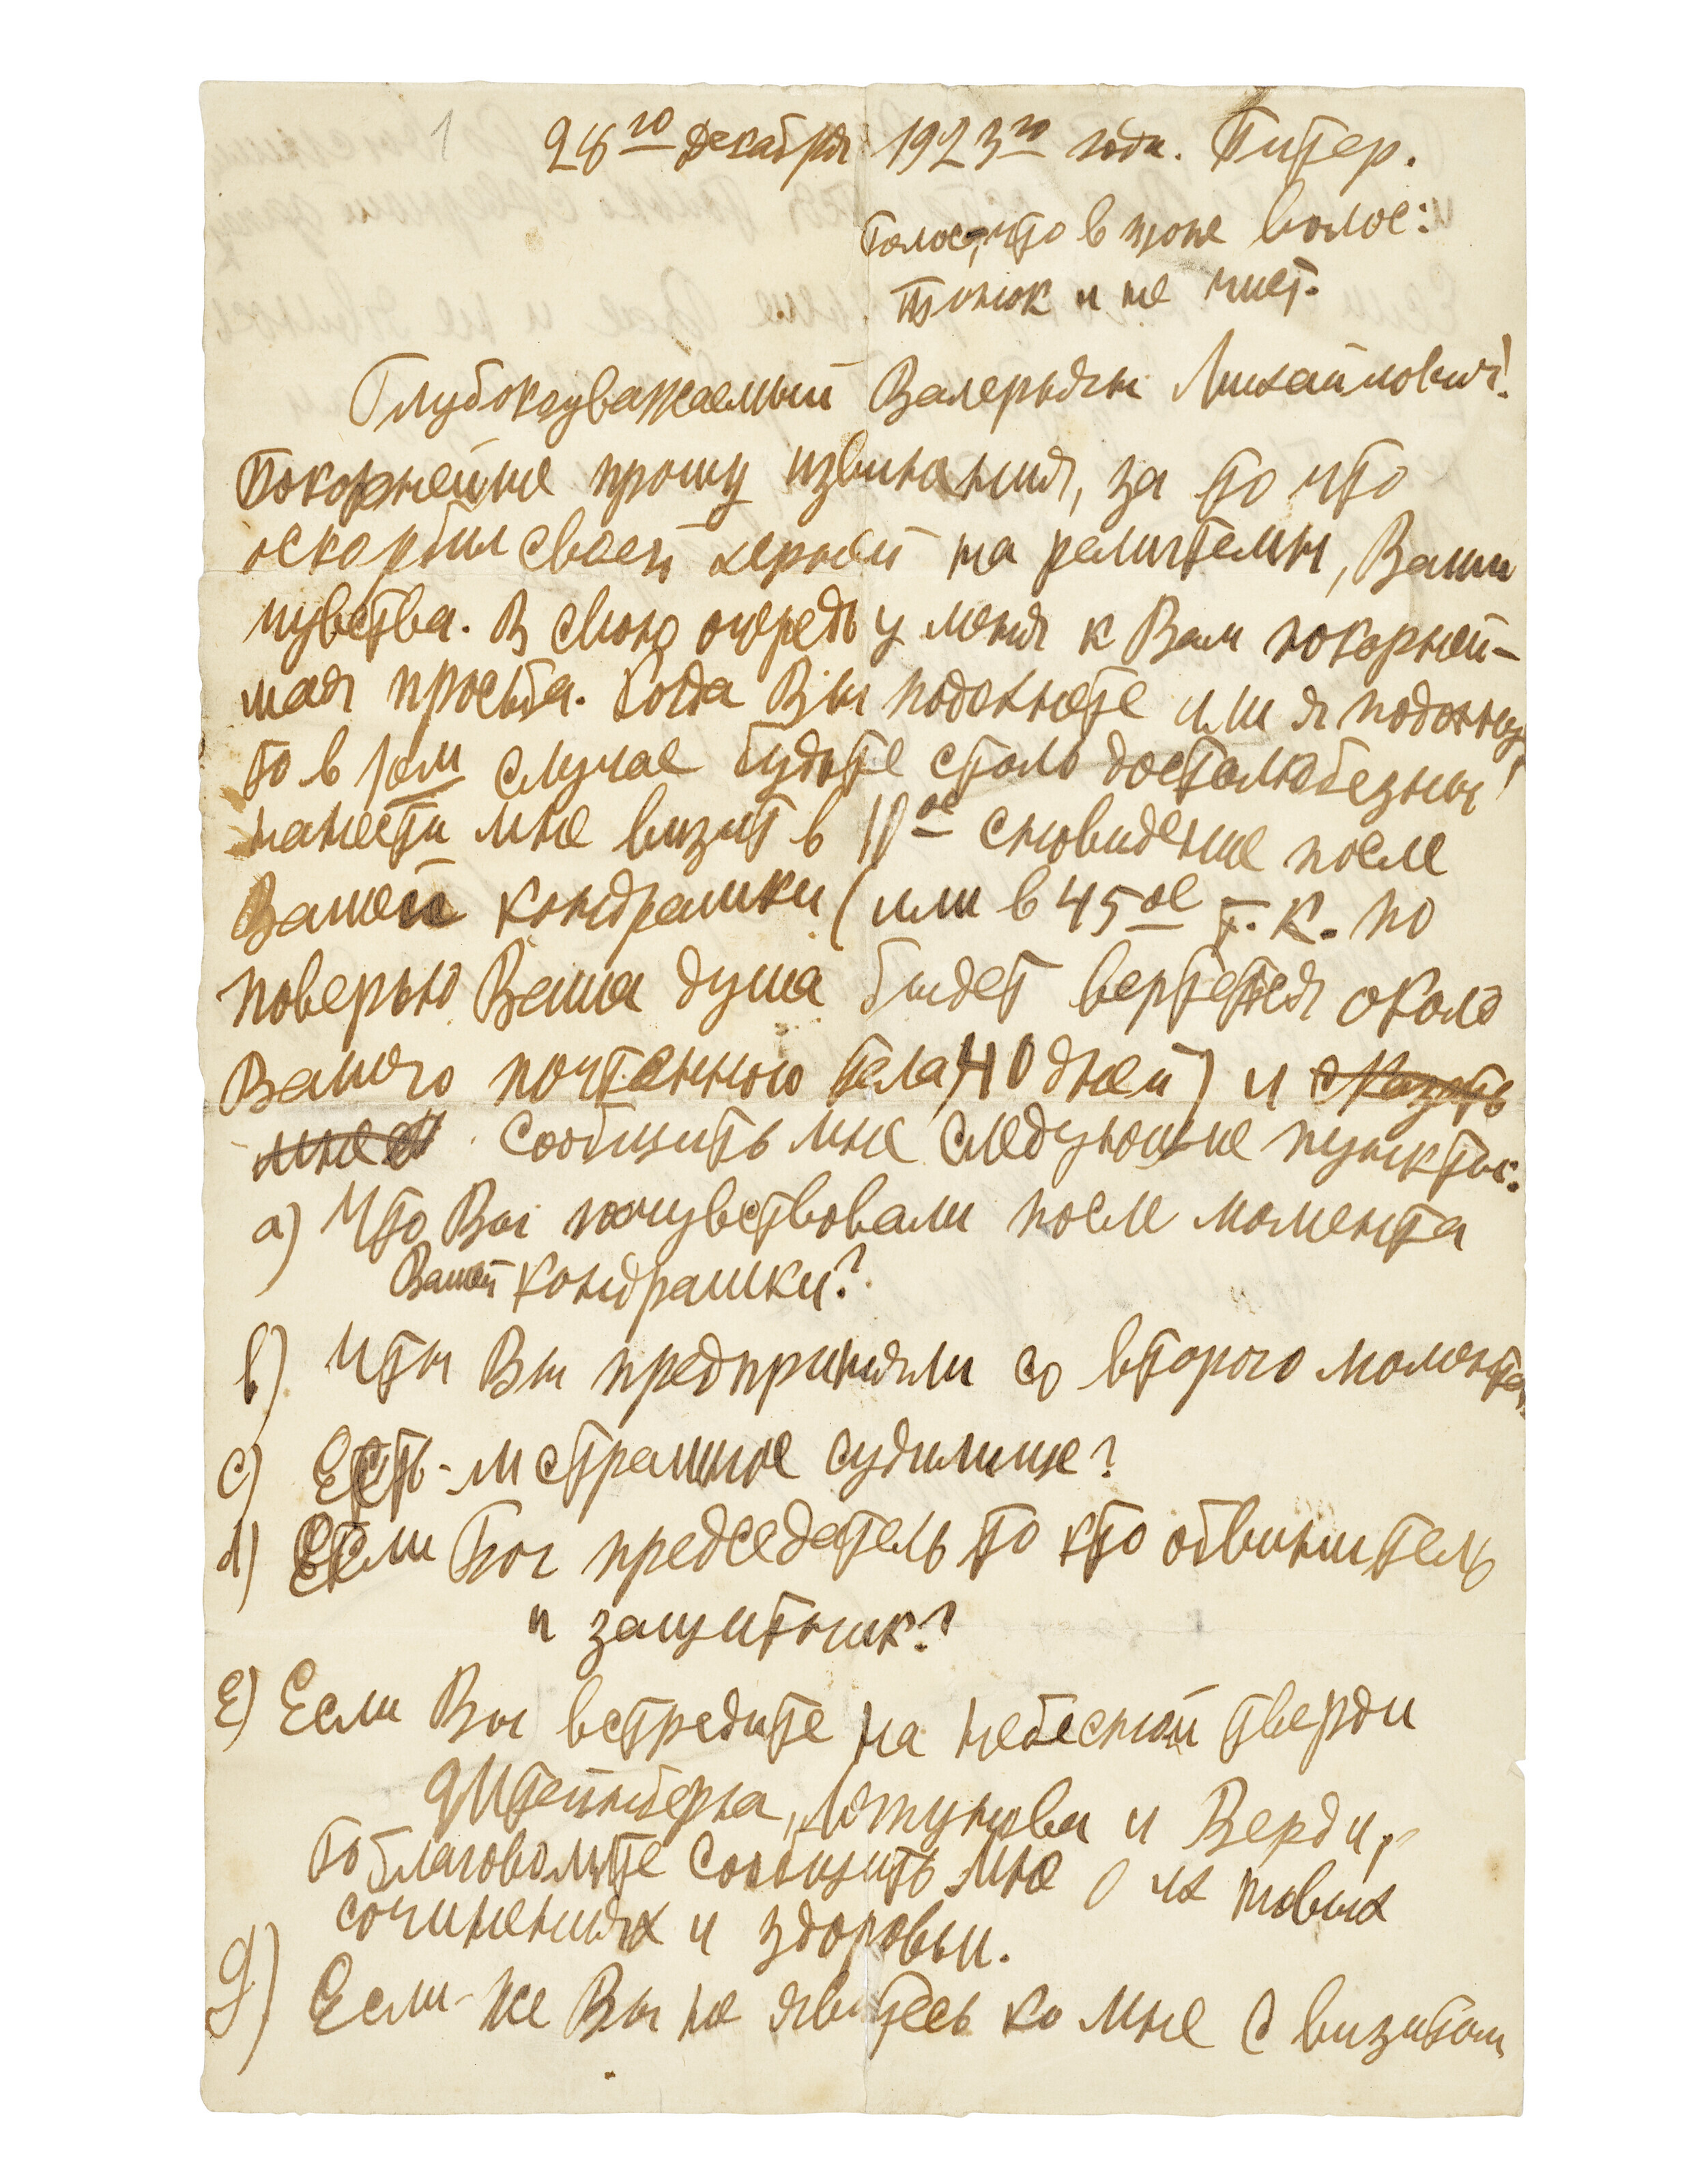 1
28го декабря 1923го года. Питер.
Голос, что в жопе волос:
тонок и не чист.
Глубокоуважаемый Валерьян Михайлович!
Покорнейше прошу извинения, за то что
оскорбил своей херней на религ Ваши
чувства. В свою очередь у меня к Вам покорней-
шая просьба. Когда Вы подохнете или я подохну,
то в том случае будьте столь достолюбезны
нанести мне визит в 10ое сновидение после
Вашей кондрашки (или в 45ое т. к. по
поверью Ваша душа будет вертеться около
Вашего почтенного тела 40 дней) и сказать
мне сообщить мне следующие пункты:
a) Что Вы почувствовали после момента
Вашей кондрашки?
b) Что Вы предприняли со второго момента
c) Есть-ли страшное судилище?
d) Если Бог председатель то кто обвинитель
и защитник?
e) Если Вы встретите на небесной тверди
Штейнберга, и Верди,
то благовольте сообщить мне о их новых
сочинениях и здоровьи.
g) Если-же Вы не явитесь ко мне с визитом